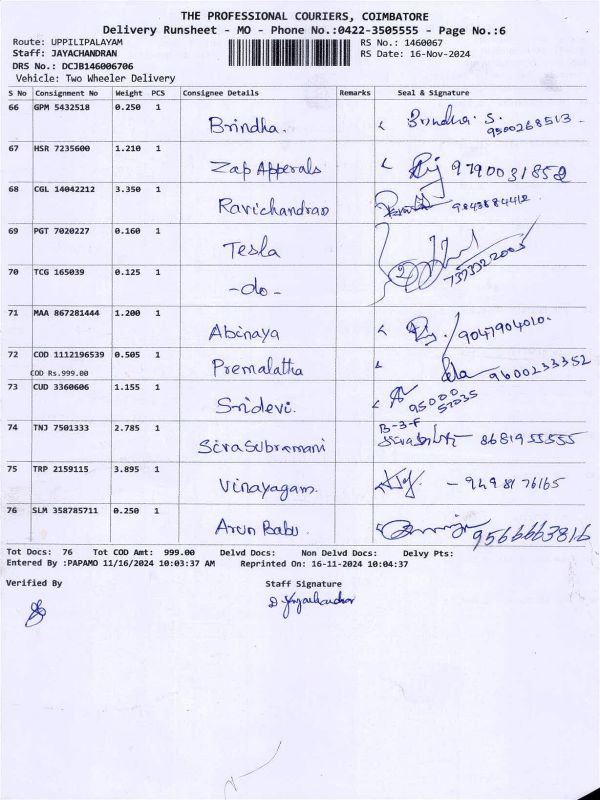 THE PROFESSIONAL COURIERS, COIMBATORE
Delivery Runsheet - MO - Phone No.:0422-3505555 - Page No.:6
Route: UPPILIPALAYAM RS No.: 1460067
Staff: JAYACHANDRAN RS Date: 16-Nov-2024
DRS No.: DCJB146006706
Vehicle: Two Wheeler Delivery
S No Consignment No Weight PCS Consignee Details Remarks Seal & Signature
66 GPM 5432518 0.250 1 Brindha. Brindha. S. 9500268513
67 HSR 7235600 1.210 1 Zap Apperals 9790031852
68 CGL 14042212 3.350 1 Ravichandran 9843884412
69 PGT 7020227 0.160 1 Tesla 7373322005
70 TCG 165039 0.125 1 -do-
71 MAA 867281444 1.200 1 Abinaya 9047904010
72 COD 1112196539 0.505 1 Premalatha 9600233352
COD Rs.999.00
73 CUD 3360606 1.155 1 Sridevi. 95000 57035
74 TNJ 7501333 2.785 1 Sivasubramani B-3-F 8681955555
75 TRP 2159115 3.895 1 Vinayagam. - 9498176165
76 SLM 358785711 0.250 1 Arun Babu. 9566663816
Tot Docs: 76 Tot COD Amt: 999.00 Delvd Docs: Non Delvd Docs: Delvy Pts:
Entered By :PAPAMO 11/16/2024 10:03:37 AM Reprinted On: 16-11-2024 10:04:37
Verified By Staff Signature